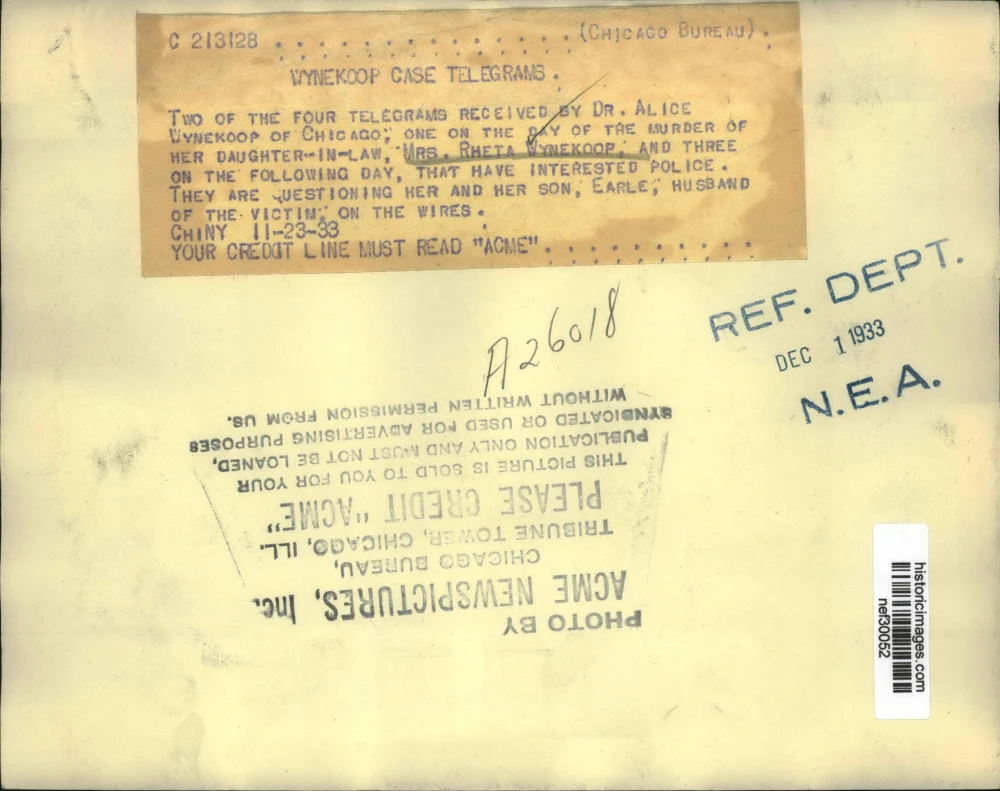 C 213128 . . . . . . . . . . . . . . (CHICAGO BUREAU) .
WYNEKOOP CASE TELEGRAMS .
TWO OF THE FOUR TELEGRAMS RECEIVED BY DR. ALICE
WYNEKOOP OF CHICAGO, ONE ON THE DAY OF THE MURDER OF
HER DAUGHTER-IN-LAW, MRS. RHETA WYNEKOOP, AND THREE
ON THE FOLLOWING DAY, THAT HAVE INTERESTED POLICE .
THEY ARE QUESTIONING HER AND HER SON, EARLE, HUSBAND
OF THE VICTIM, ON THE WIRES .
CHINY 11-23-33
YOUR CREDIT LINE MUST READ "ACME" . . . . . . . . . .
REF. DEPT.
DEC 1 1933
N.E.A.
A26018
PHOTO BY
ACME NEWSPICTURES, Inc.
CHICAGO BUREAU,
TRIBUNE TOWER, CHICAGO, ILL.
PLEASE CREDIT "ACME"
THIS PICTURE IS SOLD TO YOU FOR YOUR
PUBLICATION ONLY AND MUST NOT BE LOANED,
SYNDICATED OR USED FOR ADVERTISING PURPOSES
WITHOUT WRITTEN PERMISSION FROM US.
historicimages.com
nef30052